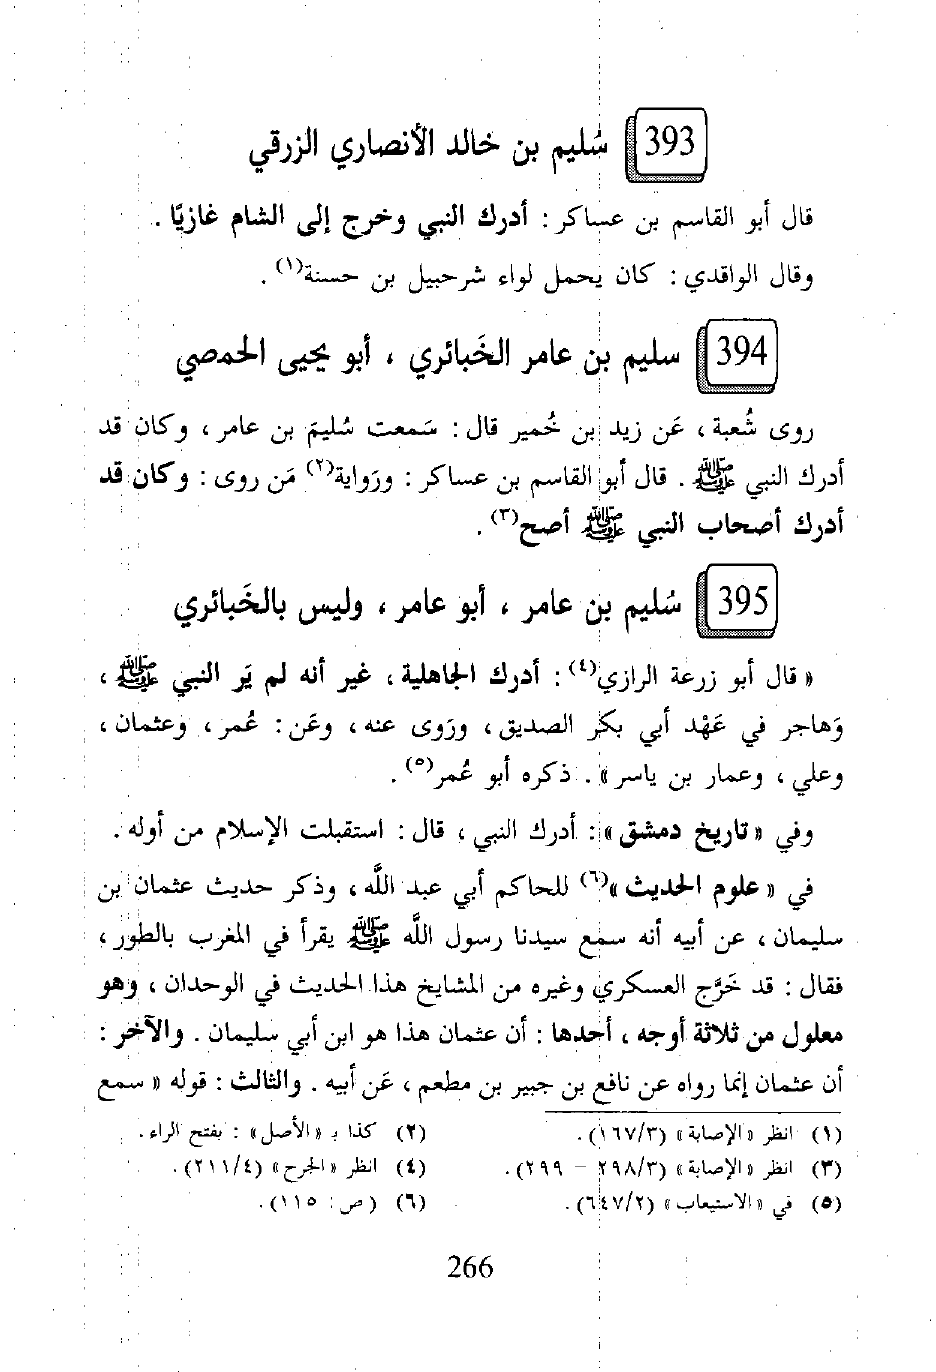 393 سُليم بن خالد الأنصاري الزرقي
قال أبو القاسم بن عساكر : أدرك النبي وخرج إلى الشام غازيًا .
وقال الواقدي : كان يحمل لواء شرحبيل بن حسنة(١) .
394 سليم بن عامر الخَبائري ، أبو يحيى الحمصي
روى شُعبة ، عَن زيد بن خُمير قال : سَمعت سُليمَ بن عامر ، وكان قد
أدرك النبي ﷺ . قال أبو القاسم بن عساكر : ورَواية(٢) مَن روى : وكان قد
أدرك أصحاب النبي ﷺ أصح(٣) .
395 سُليم بن عامر ، أبو عامر ، وليس بالخَبائري
« قال أبو زرعة الرازي(٤) : أدرك الجاهلية ، غير أنه لم يَر النبي ﷺ ،
وَهاجر في عَهْد أبي بكر الصديق ، ورَوى عنه ، وعَن : عُمر ، وعثمان ،
وعلي ، وعمار بن ياسر » . ذكره أبو عُمر(٥) .
وفي « تاريخ دمشق » : أدرك النبي ، قال : استقبلت الإسلام من أوله .
في « علوم الحديث »(٦) للحاكم أبي عبد اللَّه ، وذكر حديث عثمان بن
سليمان ، عن أبيه أنه سمع سيدنا رسول اللَّه ﷺ يقرأ في المغرب بالطور ،
فقال : قد خَرَّج العسكري وغيره من المشايخ هذا الحديث في الوحدان ، وهو
معلول من ثلاثة أوجه ، أحدها : أن عثمان هذا هو ابن أبي سليمان . والآخر :
أن عثمان إنما رواه عن نافع بن جبير بن مطعم ، عَن أبيه . والثالث : قوله « سمع
(١) انظر « الإصابة » (١٦٧/٣) .
(٢) كذا بـ « الأصل » : بفتح الراء .
(٣) انظر « الإصابة » (٢٩٨/٣ – ٢٩٩) .
(٤) انظر « الجرح » (٢١١/٤) .
(٥) في « الاستيعاب » (٦٤٧/٢) .
(٦) (ص : ١١٥) .
266